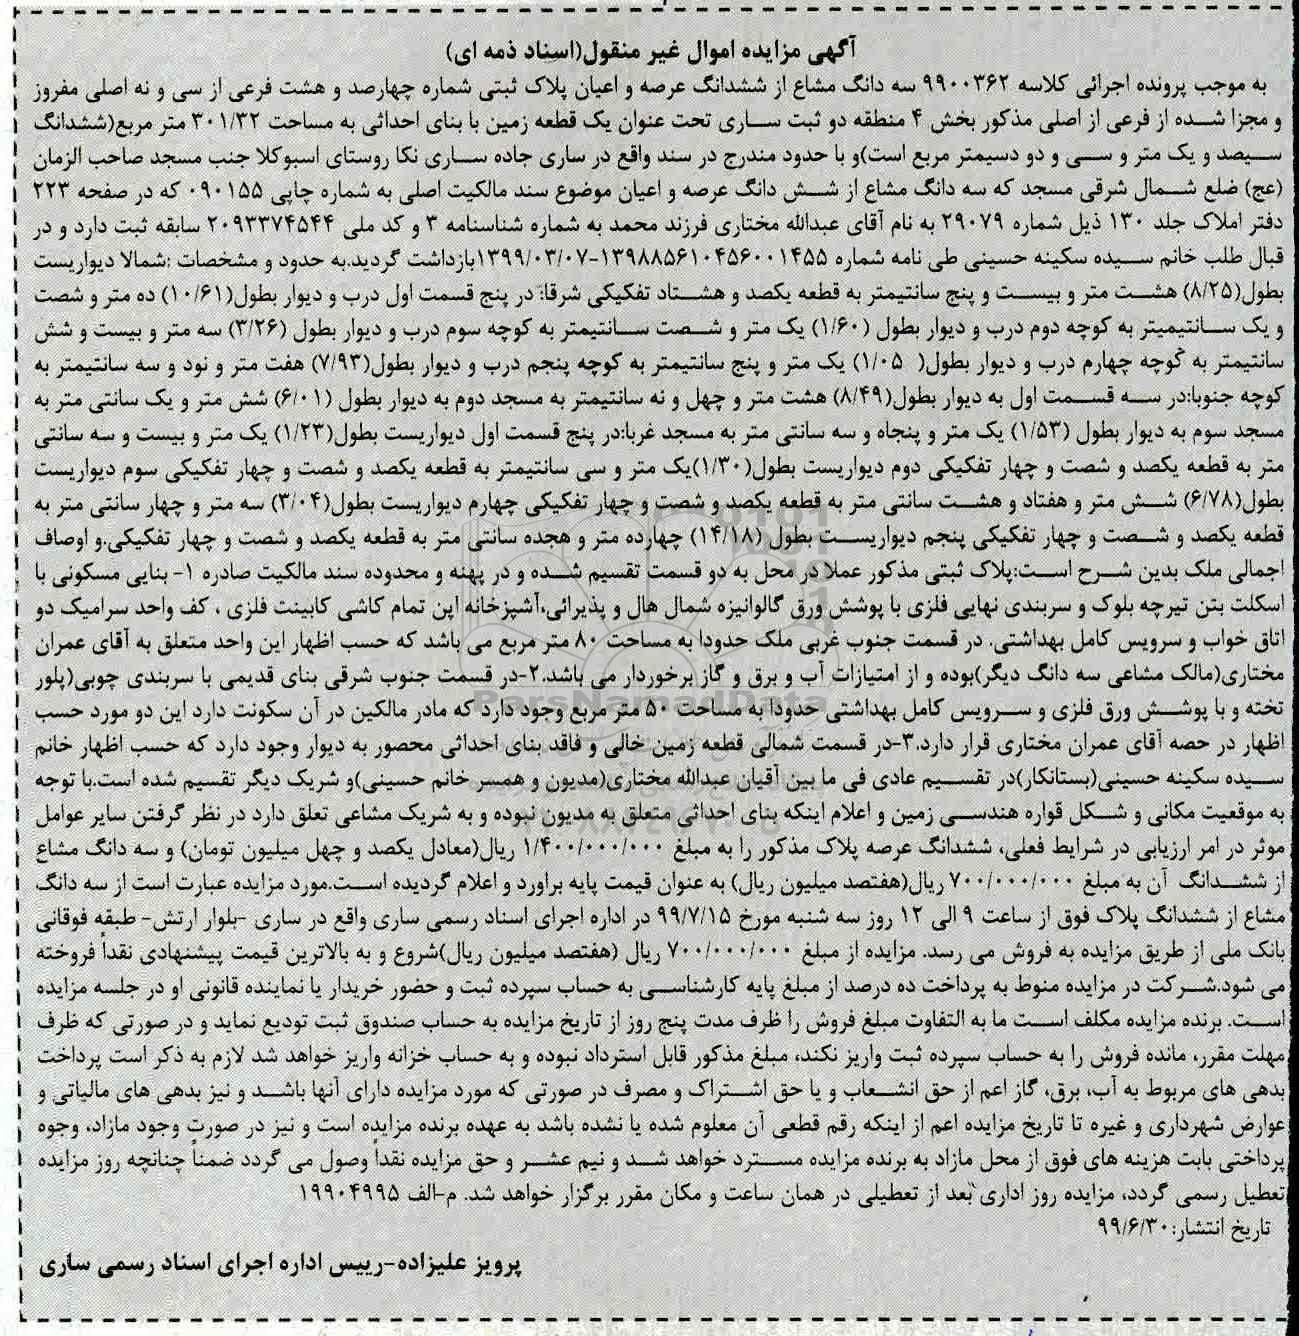 آگهی مزایده اموال غیر منقول(اسناد ذمه ای)
به موجب پرونده اجرائی کلاسه ۹۹۰۰۳۶۲ سه دانگ مشاع از ششدانگ عرصه و اعیان پلاک ثبتی شماره چهارصد و هشت فرعی از سی و نه اصلی مفروز
و مجزا شده از فرعی از اصلی مذکور بخش ۴ منطقه دو ثبت ساری تحت عنوان یک قطعه زمین با بنای احداثی به مساحت ۳۰۱/۳۲ متر مربع(ششدانگ
سیصد و یک متر و سی و دو دسیمتر مربع است)و با حدود مندرج در سند واقع در ساری جاده ساری نکا روستای اسبوکلا جنب مسجد صاحب الزمان
(عج) ضلع شمال شرقی مسجد که سه دانگ مشاع از شش دانگ عرصه و اعیان موضوع سند مالکیت اصلی به شماره چاپی ۰۹۰۱۵۵ که در صفحه ۲۲۳
دفتر املاک جلد ۱۳۰ ذیل شماره ۲۹۰۷۹ به نام آقای عبدالله مختاری فرزند محمد به شماره شناسنامه ۳ و کد ملی ۲۰۹۳۳۷۴۵۴۴ سابقه ثبت دارد و در
قبال طلب خانم سیده سکینه حسینی طی نامه شماره ۱۳۹۸۸۵۶۱۰۴۵۶۰۰۱۴۵۵-۱۳۹۹/۰۳/۰۷بازداشت گردید.به حدود و مشخصات :شمالا دیواریست
بطول(۸/۲۵) هشت متر و بیست و پنج سانتیمتر به قطعه یکصد و هشتاد تفکیکی شرقا: در پنج قسمت اول درب و دیوار بطول(۱۰/۶۱) ده متر و شصت
و یک سانتیمیتر به کوچه دوم درب و دیوار بطول (۱/۶۰) یک متر و شصت سانتیمتر به کوچه سوم درب و دیوار بطول (۳/۲۶) سه متر و بیست و شش
سانتیمتر به کوچه چهارم درب و دیوار بطول( ۱/۰۵) یک متر و پنج سانتیمتر به کوچه پنجم درب و دیوار بطول(۷/۹۳) هفت متر و نود و سه سانتیمتر به
کوچه جنوبا:در سه قسمت اول به دیوار بطول(۸/۴۹) هشت متر و چهل و نه سانتیمتر به مسجد دوم به دیوار بطول (۶/۰۱) شش متر و یک سانتی متر به
مسجد سوم به دیوار بطول (۱/۵۳) یک متر و پنجاه و سه سانتی متر به مسجد غربا:در پنج قسمت اول دیواریست بطول(۱/۲۳) یک متر و بیست و سه سانتی
متر به قطعه یکصد و شصت و چهار تفکیکی دوم دیواریست بطول(۱/۳۰)یک متر و سی سانتیمتر به قطعه یکصد و شصت و چهار تفکیکی سوم دیواریست
بطول(۶/۷۸) شش متر و هفتاد و هشت سانتی متر به قطعه یکصد و شصت و چهار تفکیکی چهارم دیواریست بطول(۳/۰۴) سه متر و چهار سانتی متر به
قطعه یکصد و شصت و چهار تفکیکی پنجم دیواریست بطول (۱۴/۱۸) چهارده متر و هجده سانتی متر به قطعه یکصد و شصت و چهار تفکیکی.و اوصاف
اجمالی ملک بدین شرح است:پلاک ثبتی مذکور عملا در محل به دو قسمت تقسیم شده و در پهنه و محدوده سند مالکیت صادره ۱- بنایی مسکونی با
اسکلت بتن تیرچه بلوک و سربندی نهایی فلزی با پوشش ورق گالوانیزه شمال هال و پذیرائی،آشپزخانه اپن تمام کاشی کابینت فلزی ، کف واحد سرامیک دو
اتاق خواب و سرویس کامل بهداشتی. در قسمت جنوب غربی ملک حدودا به مساحت ۸۰ متر مربع می باشد که حسب اظهار این واحد متعلق به آقای عمران
مختاری(مالک مشاعی سه دانگ دیگر)بوده و از امتیازات آب و برق و گاز برخوردار می باشد.۲-در قسمت جنوب شرقی بنای قدیمی با سربندی چوبی(پلور
تخته و با پوشش ورق فلزی و سرویس کامل بهداشتی حدودا به مساحت ۵۰ متر مربع وجود دارد که مادر مالکین در آن سکونت دارد این دو مورد حسب
اظهار در حصه آقای عمران مختاری قرار دارد.۳-در قسمت شمالی قطعه زمین خالی و فاقد بنای احداثی محصور به دیوار وجود دارد که حسب اظهار خانم
سیده سکینه حسینی(بستانکار)در تقسیم عادی فی ما بین آقیان عبدالله مختاری(مدیون و همسر خانم حسینی)و شریک دیگر تقسیم شده است.با توجه
به موقعیت مکانی و شکل قواره هندسی زمین و اعلام اینکه بنای احداثی متعلق به مدیون نبوده و به شریک مشاعی تعلق دارد در نظر گرفتن سایر عوامل
موثر در امر ارزیابی در شرایط فعلی، ششدانگ عرصه پلاک مذکور را به مبلغ ۱/۴۰۰/۰۰۰/۰۰۰ ریال(معادل یکصد و چهل میلیون تومان) و سه دانگ مشاع
از ششدانگ آن به مبلغ ۷۰۰/۰۰۰/۰۰۰ ریال(هفتصد میلیون ریال) به عنوان قیمت پایه براورد و اعلام گردیده است.مورد مزایده عبارت است از سه دانگ
مشاع از ششدانگ پلاک فوق از ساعت ۹ الی ۱۲ روز سه شنبه مورخ ۹۹/۷/۱۵ در اداره اجرای اسناد رسمی ساری واقع در ساری -بلوار ارتش- طبقه فوقانی
بانک ملی از طریق مزایده به فروش می رسد. مزایده از مبلغ ۷۰۰/۰۰۰/۰۰۰ ریال (هفتصد میلیون ریال)شروع و به بالاترین قیمت پیشنهادی نقداً فروخته
می شود.شرکت در مزایده منوط به پرداخت ده درصد از مبلغ پایه کارشناسی به حساب سپرده ثبت و حضور خریدار یا نماینده قانونی او در جلسه مزایده
است. برنده مزایده مکلف است ما به التفاوت مبلغ فروش را ظرف مدت پنج روز از تاریخ مزایده به حساب صندوق ثبت تودیع نماید و در صورتی که ظرف
مهلت مقرر، مانده فروش را به حساب سپرده ثبت واریز نکند، مبلغ مذکور قابل استرداد نبوده و به حساب خزانه واریز خواهد شد لازم به ذکر است پرداخت
بدهی های مربوط به آب، برق، گاز اعم از حق انشعاب و یا حق اشتراک و مصرف در صورتی که مورد مزایده دارای آنها باشد و نیز بدهی های مالیاتی و
عوارض شهرداری و غیره تا تاریخ مزایده اعم از اینکه رقم قطعی آن معلوم شده یا نشده باشد به عهده برنده مزایده است و نیز در صورت وجود مازاد، وجوه
پرداختی بابت هزینه های فوق از محل مازاد به برنده مزایده مسترد خواهد شد و نیم عشر و حق مزایده نقداً وصول می گردد ضمناً چنانچه روز مزایده
تعطیل رسمی گردد، مزایده روز اداری بعد از تعطیلی در همان ساعت و مکان مقرر برگزار خواهد شد. م-الف ۱۹۹۰۴۹۹۵
تاریخ انتشار:۹۹/۶/۳۰
پرویز علیزاده-رییس اداره اجرای اسناد رسمی ساری
ParsNamadData